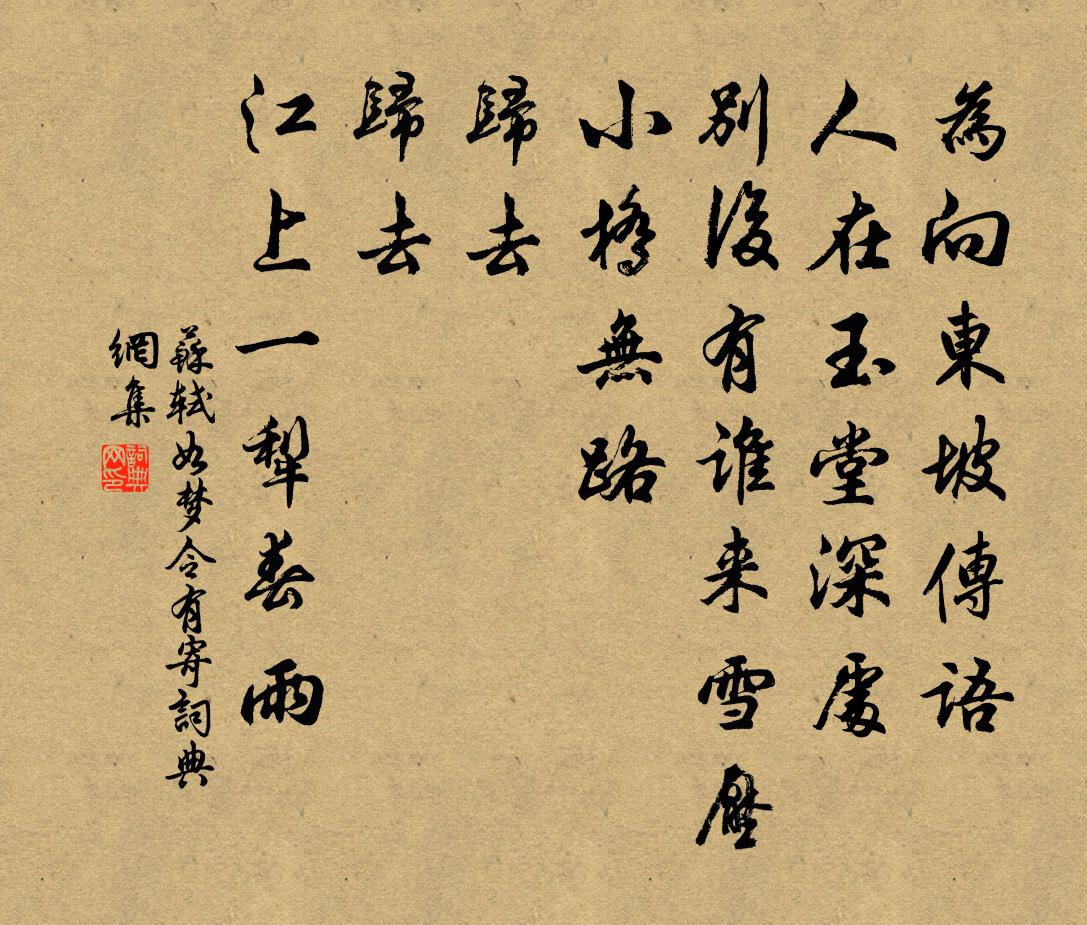 為向東坡傳語
人在玉堂深處
別後有誰来雪壓
小橋無路
歸去
歸去
江上一犁春雨
蘇軾如梦令有寄詞典
網集
詞典
网印